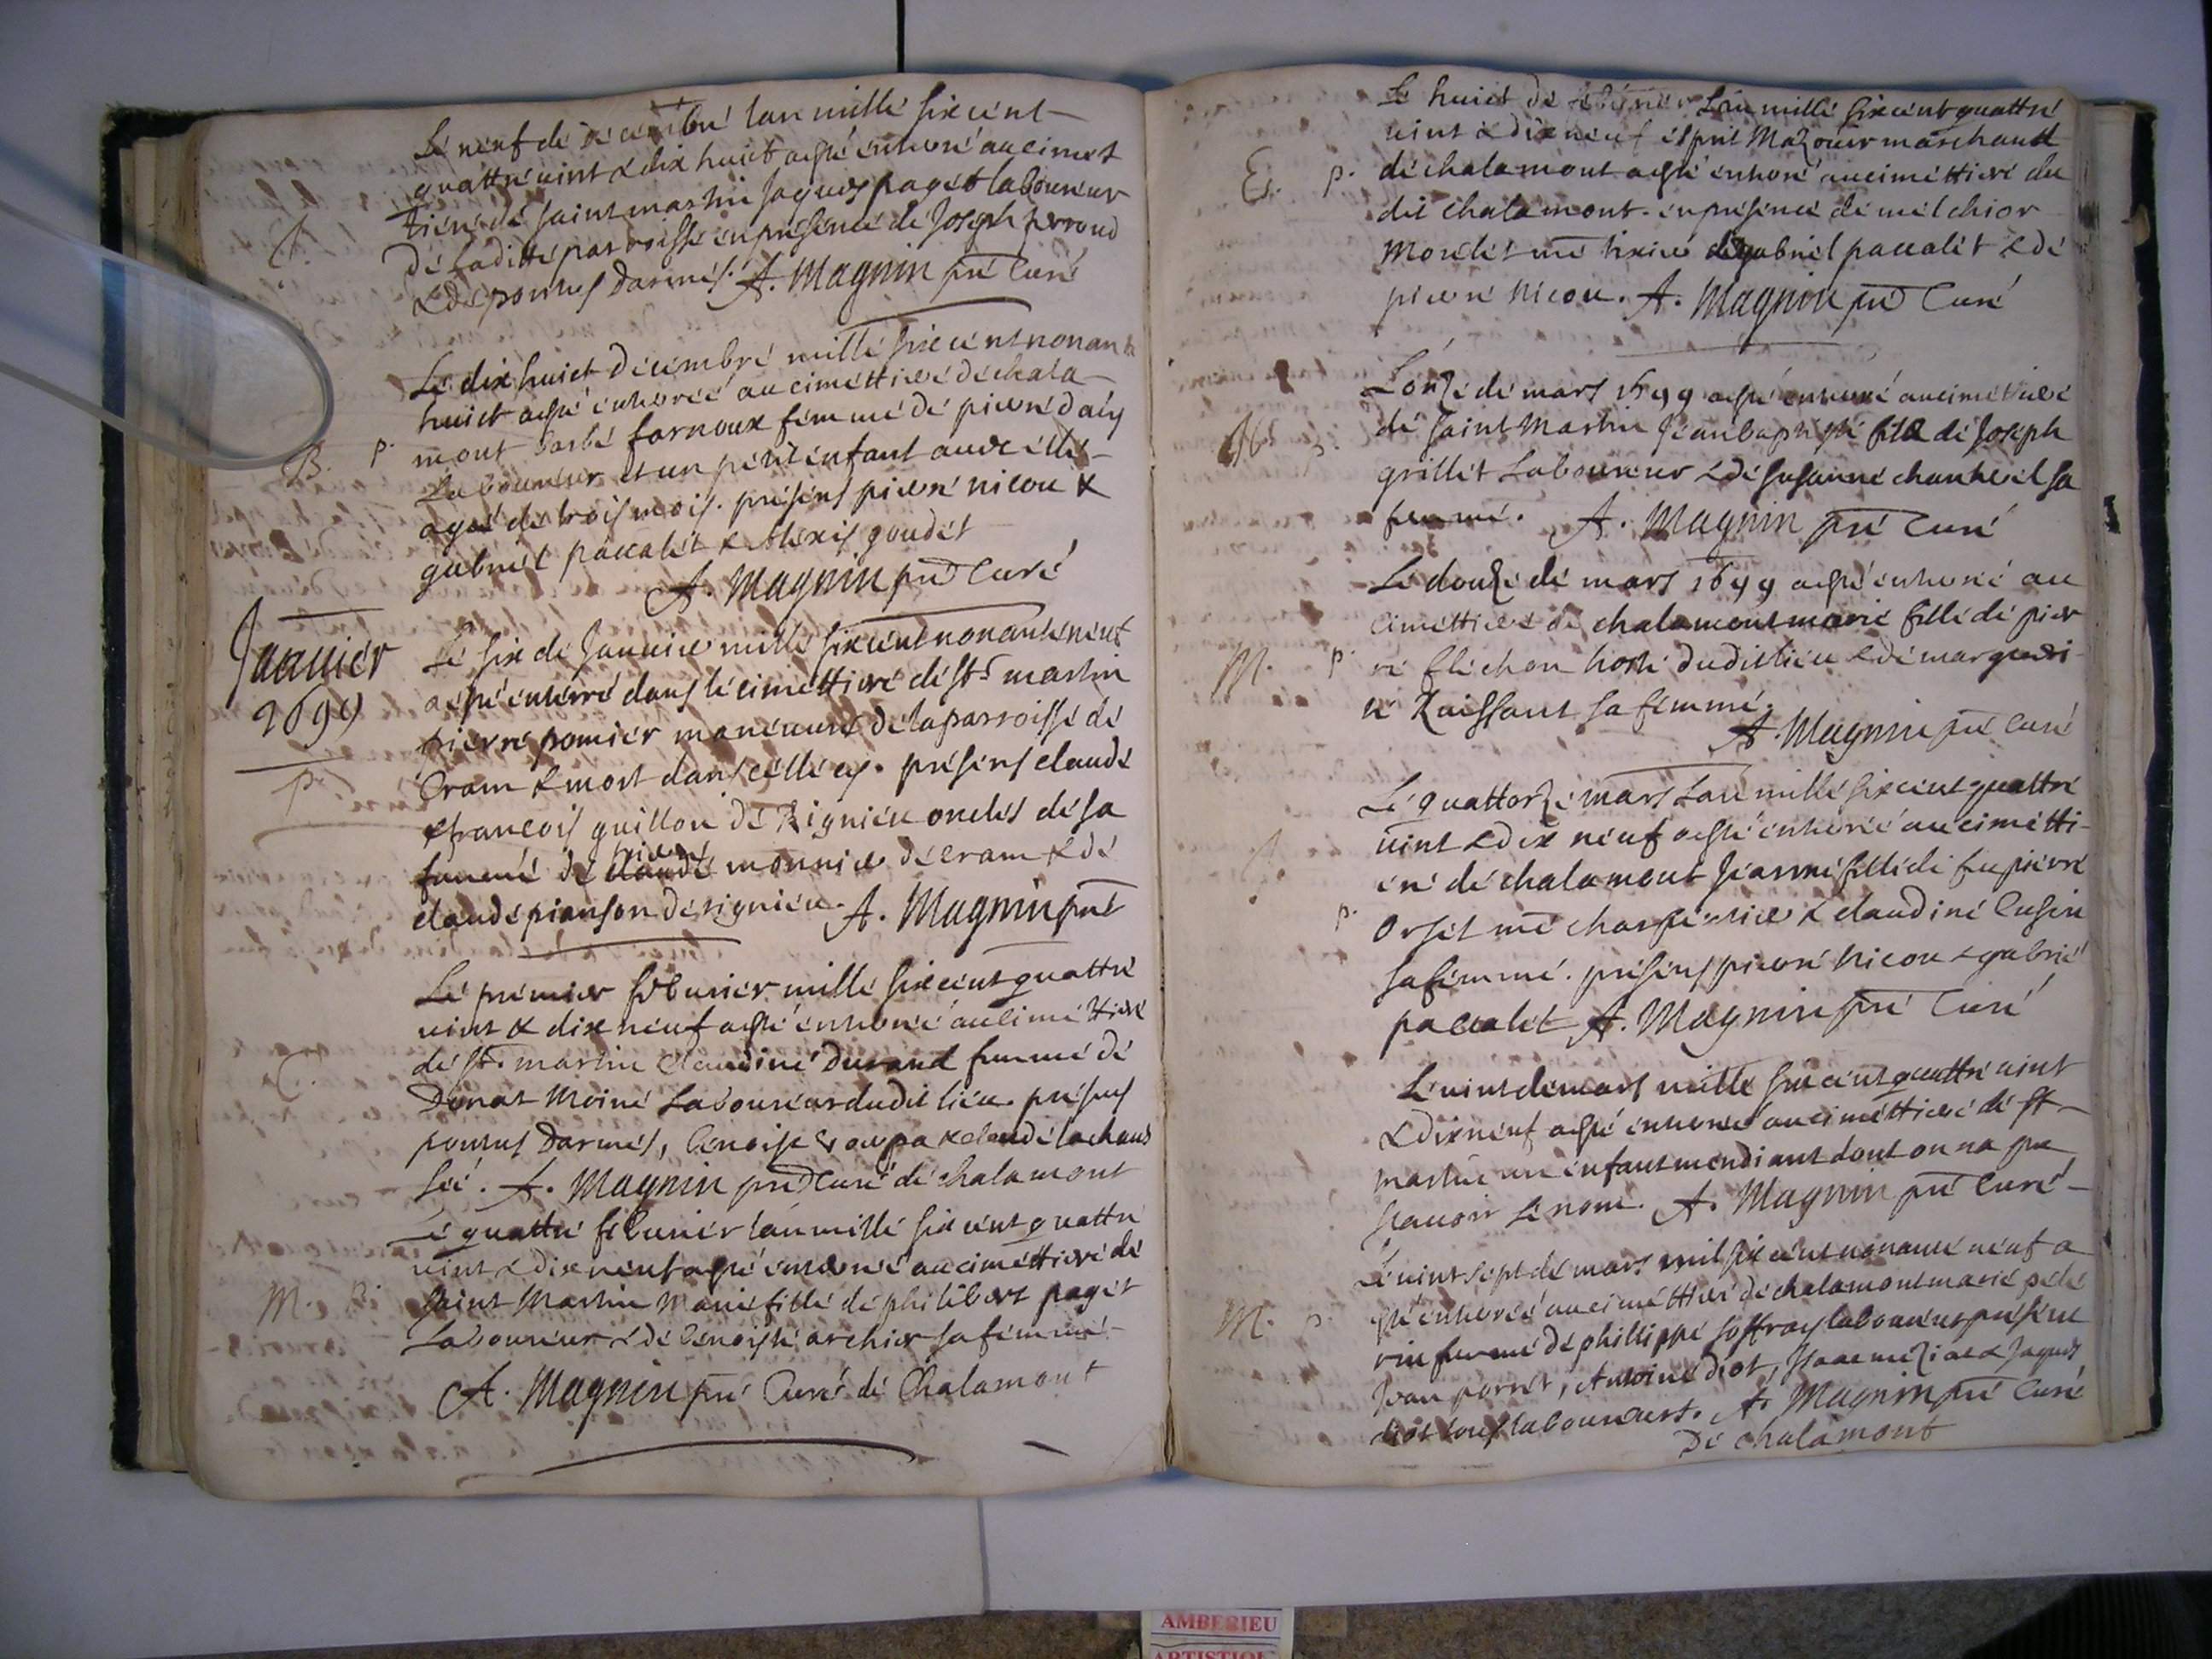 Le neuf de decembre lan mille six cent
quattre vint & dix huict a esté enterré au cimet
tiere de saint martin Jaques paget laboureur
J.
de laditte parroisse en presence de Joseph perroud
& de ponthus Darmes. A. Magnin pre Curé
Le dix huict decembre mille six cent nonante
huict a esté enterreé au cimettiere de chala-
B. p. mont barbe farnoux femme de pierre
Laboureur et un petit enfant avec elle
agé de trois mois. presens pierre nicou &
gabriel paccalet & Alexis goudet
A. Magnin pre Curé
Januier
1699
p.
Le six de Januier mille six cent nonante neuf
a esté enterré dans le cimettiere de st martin
pierre pomier manéuure de la parroisse de
Cram & mort dans celle cy. presens claude
& francois guillon de Rignieu oncles de sa
femme de pierre monnier de cram & de
claude pianson de rignieu. A. Magnin pre
Le premier feburier mille six cent quattre
vint & dix neuf a esté enterreé au cimettiere
C. de st. martin Claudine Durand femme de
Donat Moine Laboureur dudit lieu. presens
ponthus Darmes, benoist & claude lachaus
seé. A. Magnin pre Curé de chalamont
Le quattre feburier lan mille six cent quattre
vint & dix neuf a esté enterreé au cimettiere de
M. p. saint Martin Marie fille de philibert paget
Laboureur & de benoiste archier sa femme
A. Magnin pre Curé de Chalamont
Le huict de feburier Lan mille six cent quattre
vint & dix neuf esprit Mazouier marchand
E. p. de chalamont a esté enterré au cimettiere du
dit chalamont. en presence de melchior
Morelet me tixier de gabriel paccalet & de
pierre Nicou. A. Magnin pre Curé
Lonze de mars 1699 a esté enterré au cimettiere
de saint Martin Jean baptiste fils de Joseph
grillet Laboureur & de susanne chantrel sa
femme. A. Magnin pre Curé
Le douze de mars 1699 a esté enterreé au
cimettiere de chalamont marie fille de pier
M. p. re flechon hoste dudit lieu & de margueri
te Ruissant sa femme.
A. Magnin pre Curé
Le quattorze mars Lan mille six cent quattre
vint & dix neuf a esté enterreé au cimetti-
J. ere de chalamont Jeanne fille de feu pierre
p. Orset me charpentier & claudine Cusin
sa femme. presens pierre Nicou & gabriel
paccalet A. Magnin pre Curé
Le vint de mars mille six cent quattre vint
& dix neuf a esté enterré au cimettiere de st
martin un enfant mendiant dont on na pu
scavoir le nom. A. Magnin pre Curé
Le vint sept de mars mil six cent nonante neuf a
esté enterreé au cimettiere de chalamont marie
M. p. femme de phillippe laboureur presens
Jean perret, Antoine diot, & Jaques
diot tous laboureurs. A. Magnin pre Curé
De chalamont
AMBERIEU
ARTISTIQUE